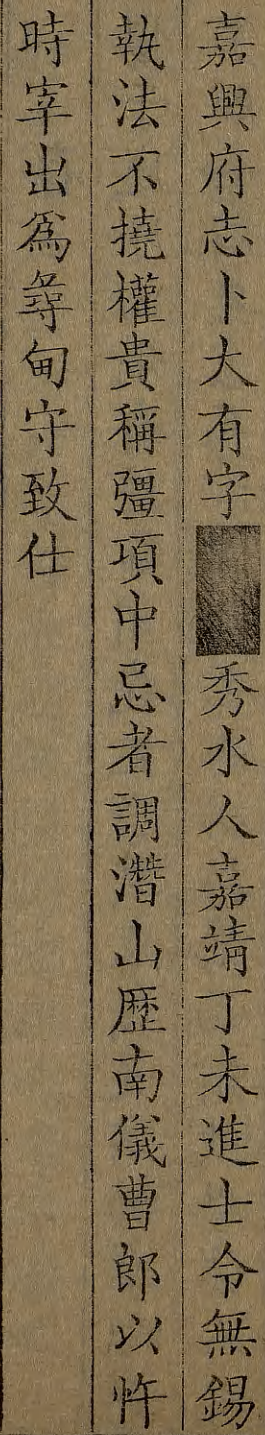 嘉興府志卜大有字秀水人嘉靖丁未進士令無錫
執法不撓權貴稱彊項中忌者調潛山歴南儀曹郎以忤
時宰出爲尋甸守致仕